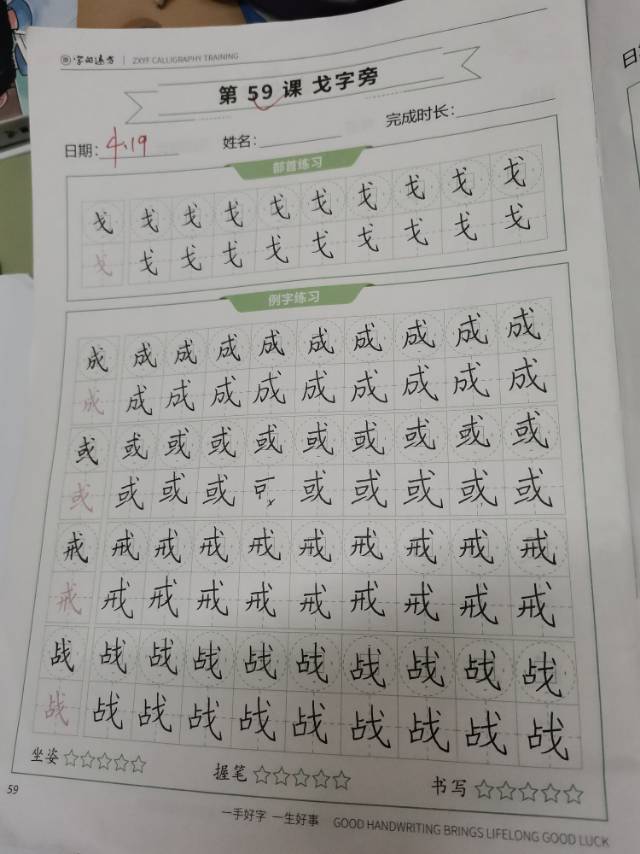 字的远方 ZXYF CALLIGRAPHY TRAINING
第 59 课 戈字旁
日期: 4.19 姓名: 完成时长:
部首练习
戈 戈 戈 戈 戈 戈 戈 戈 戈 戈
戈 戈 戈 戈 戈 戈 戈 戈 戈 戈
例字练习
成 成 成 成 成 成 成 成 成 成
成 成 成 成 成 成 成 成 成 成
或 或 或 或 或 或 或 或 或 或
或 或 或 或 或 或 或 或 或
戒 戒 戒 戒 戒 戒 戒 戒 戒 戒
戒 戒 戒 戒 戒 戒 戒 戒 戒 戒
战 战 战 战 战 战 战 战 战 战
战 战 战 战 战 战 战 战 战 战
坐姿 ☆☆☆☆☆ 握笔 ☆☆☆☆☆ 书写 ☆☆☆☆☆
59
一手好字 一生好事 GOOD HANDWRITING BRINGS LIFELONG GOOD LUCK
日